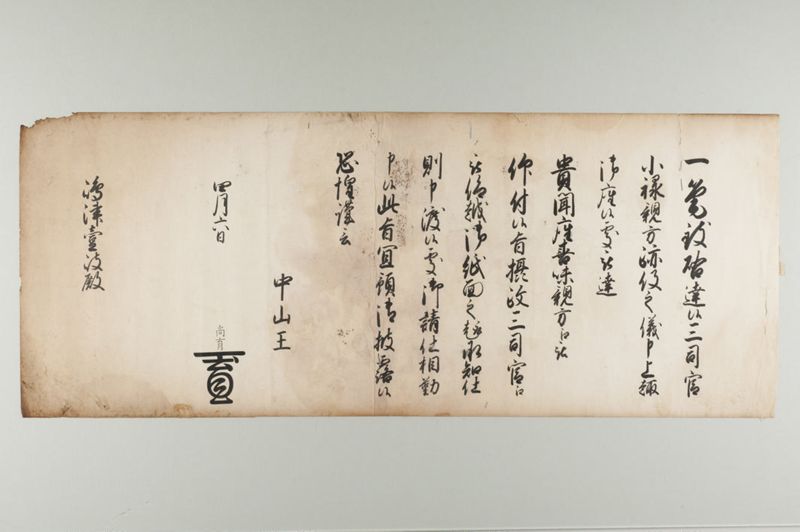 一筆致啓達候三司官
小禄親方跡役之儀申上越
御座候処被達
貴聞座喜味親方江被
仰付候旨摂政三司官江
被仰越御紙面之趣承知仕
則申渡候処御請仕相勤
申候此旨宜預御披露候
恐惶謹言
中山王
四月六日
尚育